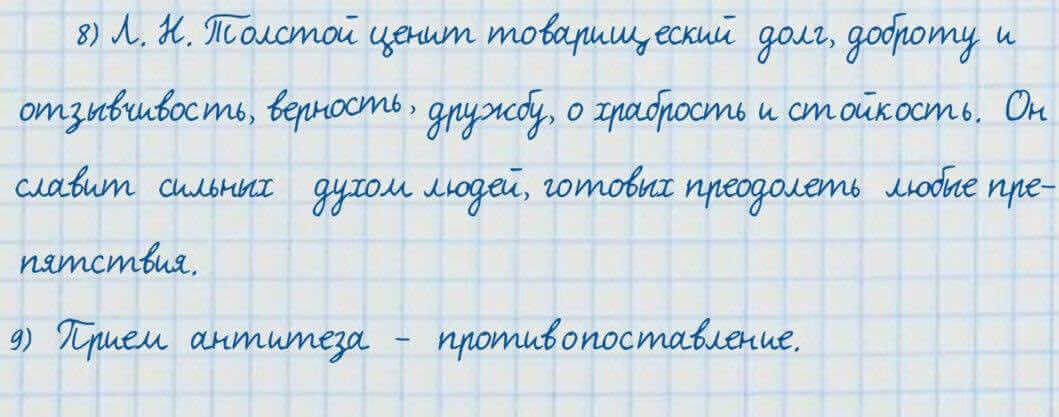 8) Л. Н. Толстой ценит товарищеский долг, доброту и
отзывчивость, верность, дружбу, о храбрость и стойкость. Он
славит сильных духом людей, готовых преодолеть любые пре-
пятствия.
9) Прием антитеза - противопоставление.